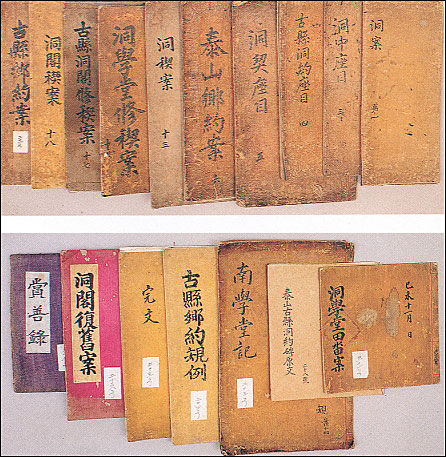 古縣鄕約案
洞閣禊案 十八
古縣洞閣修禊案 十七
洞學堂修禊案
洞禊案 十三
泰山鄕約案
洞契座目 五
古縣洞約座目 四
洞中座目
洞案
賞善錄
洞閣復舊案
完文
古縣鄕約規例
南學堂記
泰山古縣洞約碑
己未十一月 日
洞學堂田畓案